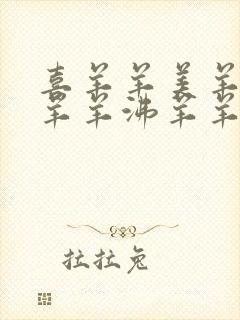 喜羊羊美羊
羊羊沸羊羊
拉拉兔